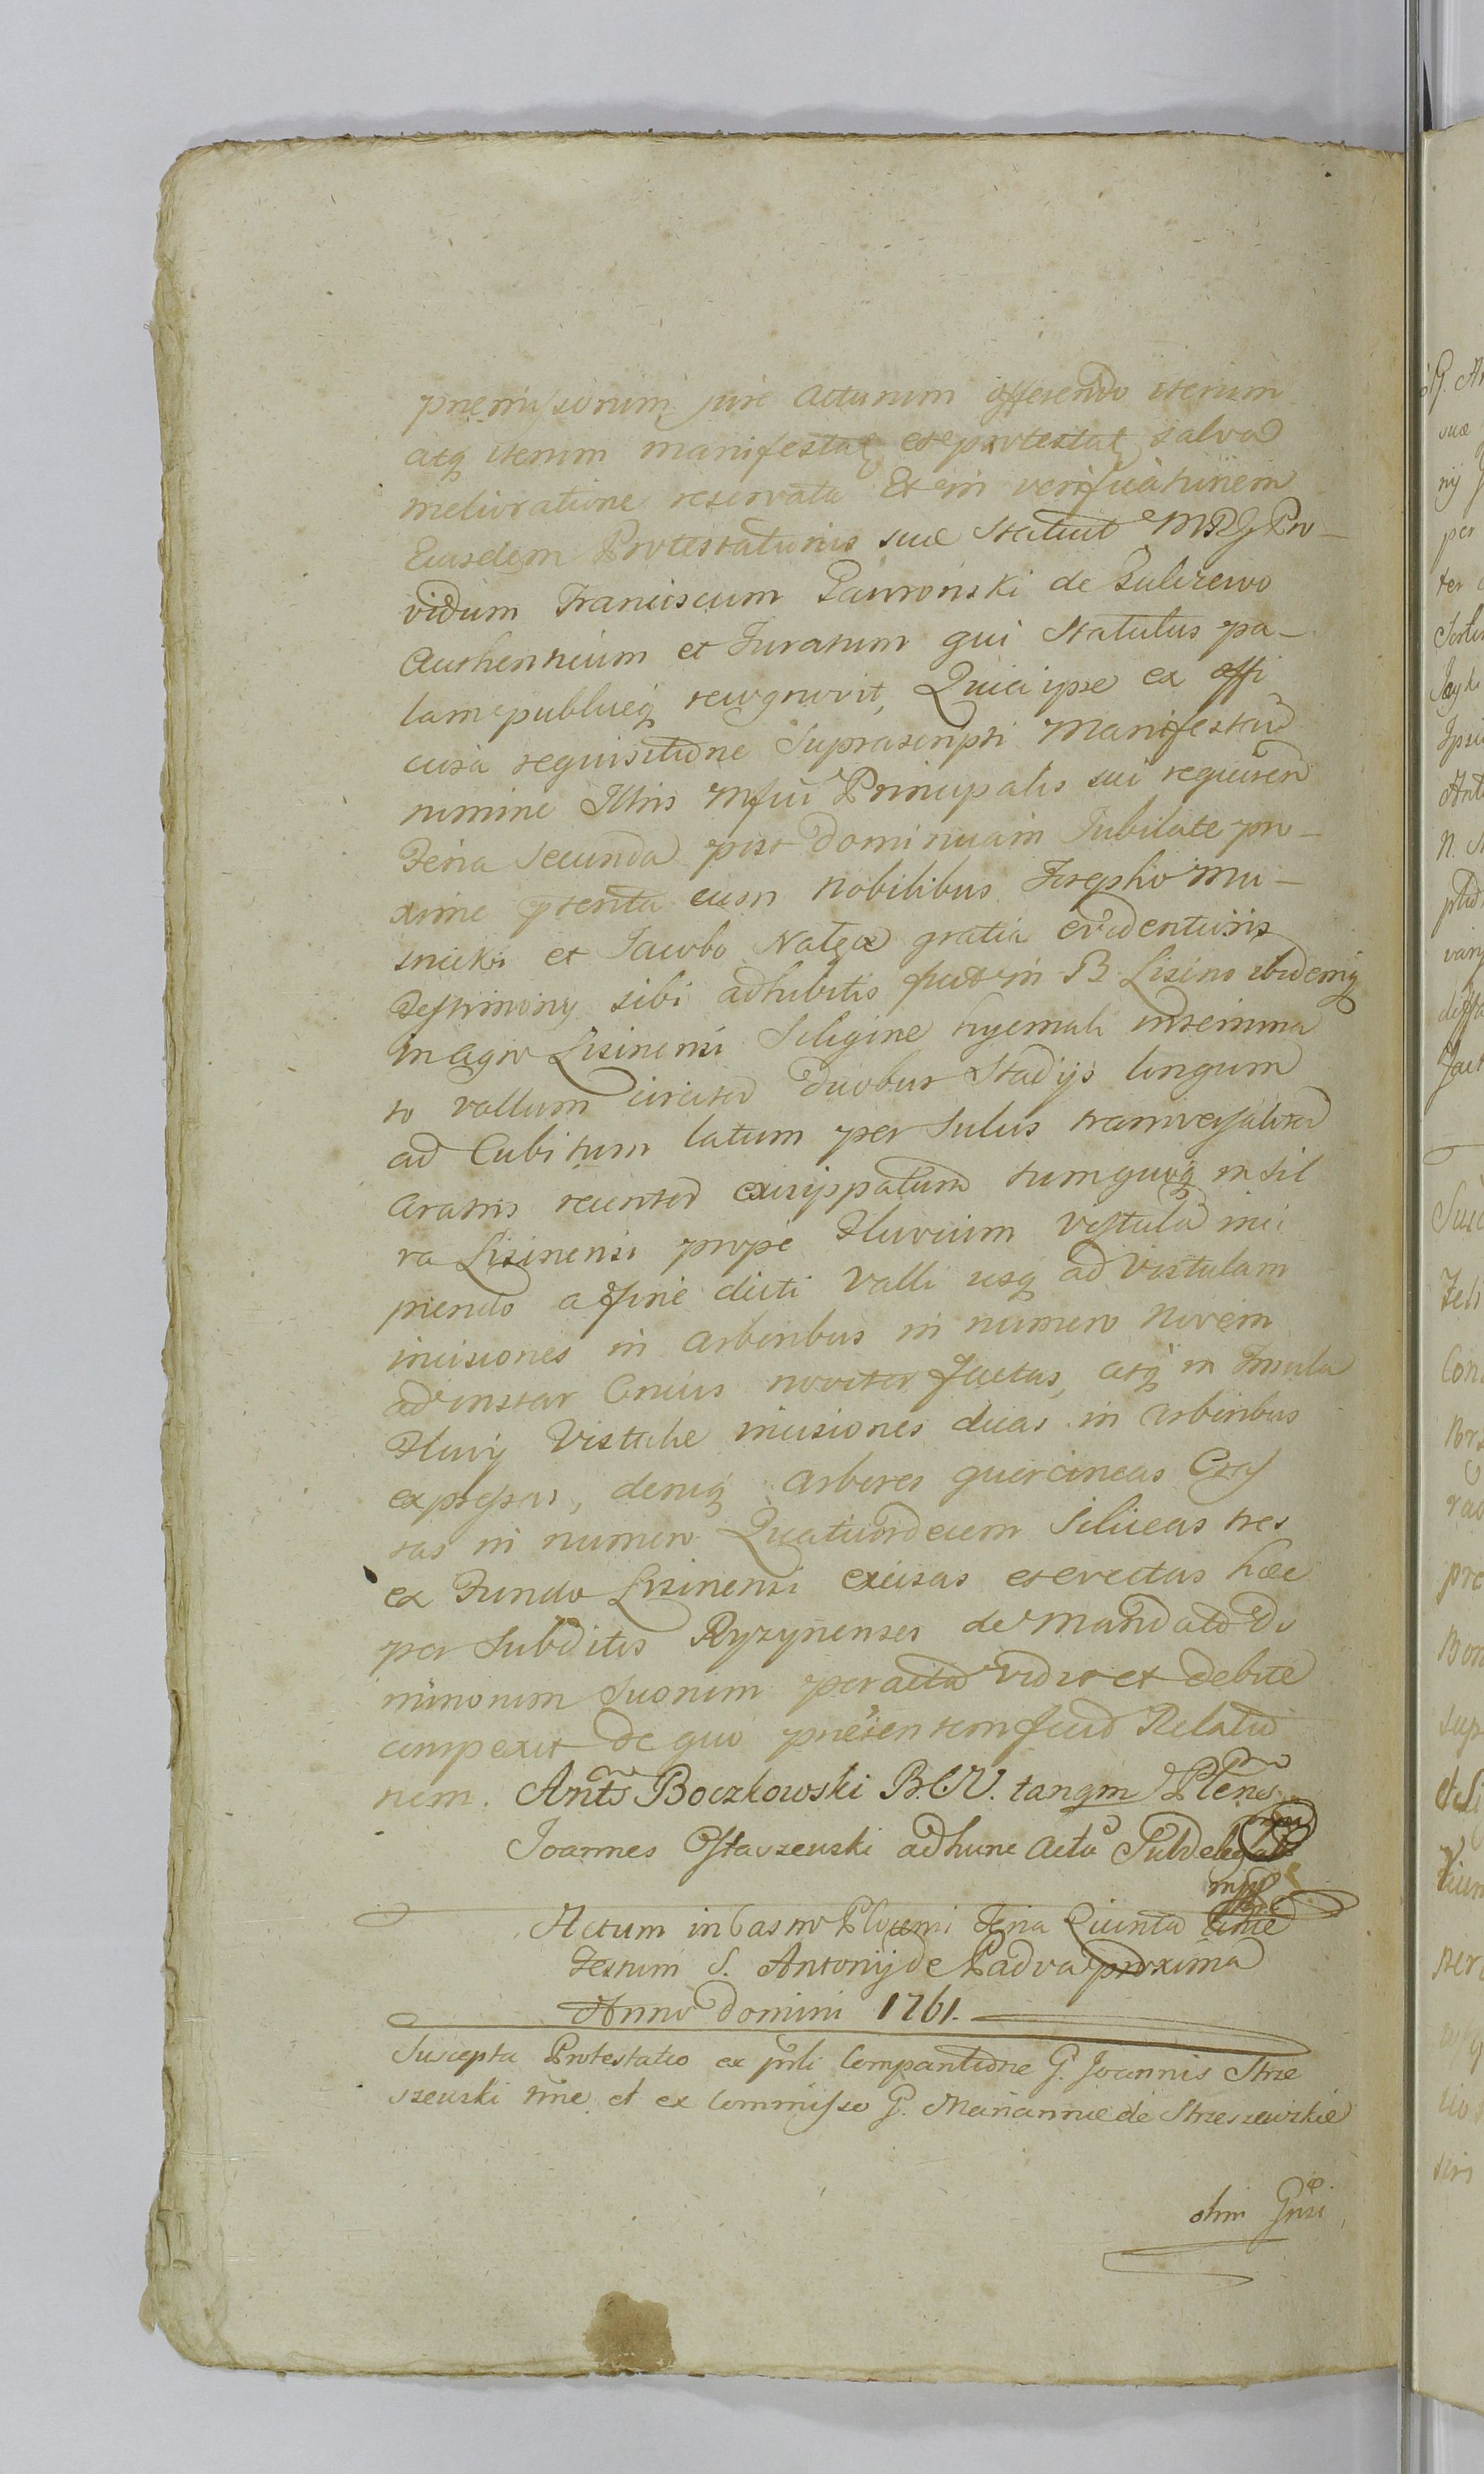 præmissorum jure acturum offerendo iterum
atq iterum manifestat et protestat salva
melioratione reservata Et in verificationem
Eiusdem Protestationis suæ Statuit MRG Pro-
vidum Franciscum Gawronski de Gulczewo
Authenticum et Juratum qui Statutus pa-
lam publiceq recognovit, Quia ipse ex offi
ciosa requisitione Suprascripti Manifestan
nomine Illris Mfici Principalis sui requiren
Feria Secunda post Dominicam Jubilate pro-
xime præterita cum Nobilibus Josepho Mu-
snicki et Jacobo Natęcz gratia evidentioris
Testimony sibi adhibitis fuit in B. Lisino ibidemq
in agro Lisinensi Siligine hyemali insemina
to vallum circiter duobus Stadijs longum
ad Cubitum latum per Sulcos transversaliter
Aratris recenter exscippatum tum quoq in Sil
va Lisinensi prope Fluvium Vistula inci
piendo a fine dicti Valli usq ad Vistulam
incisiones in arboribus in numero Novem
ad instar Crucis noviter factas, atq in Insula
Fluvij Vistulæ incisiones duas in arboribus
expressas, deniq Arbores quercineas Cras
sas in numero Quatuordecem Siliceas tres
ex Fundo Lisinensi excisas et evectas hæc
per Subditos Ryzynenses de Mandato Do
minorum Suorum peracta vidit et debite
comperit De quo præsentem fecit Relatio
nem. Ants Boczkowski B.C.V. tanqm Plens
Joannes Ostaszewski ad hunc Actu Subdelegat
mpp
Actum in Castro Plocensi Feria Quinta ante
Festum S. Antonij de Padva proxima
Anno Domini 1761.
Suscepta Protestatio ex prli Compantione G. Joannis Strze
szewski nne et ex Commisso G. Mariannæ de Strzeszewskie
olim Gnsi